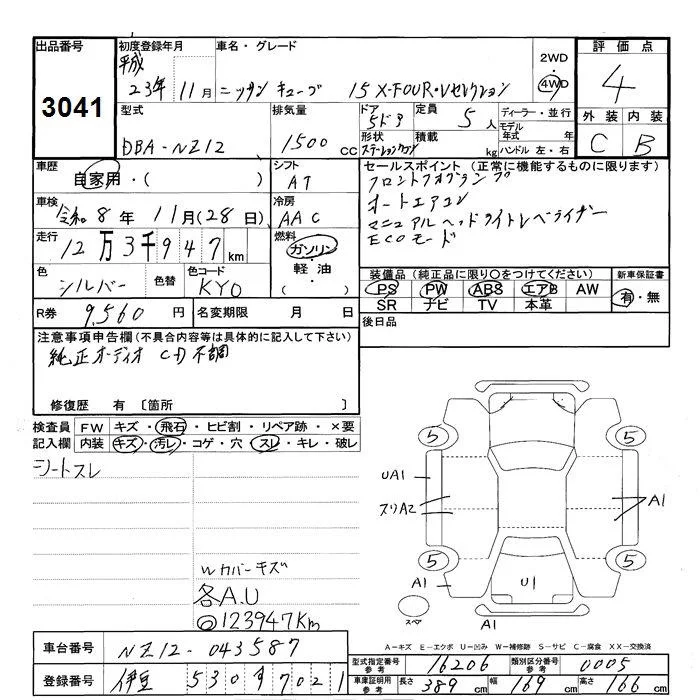 出品番号
3041
初度登録年月
平成
23年 11月
車名・グレード
ニッサン キューブ 15X-FOUR・Vセレクション
2WD
4WD
評価点
4
外装 内装
C B
型式
DBA-NZ12
排気量
1500 cc
ドア
5ドア
形状
ステーションワゴン
定員
5人
積載
kg
ディーラー・並行
モデル年式 年
ハンドル 左・右
車歴
自家用・( )
シフト
AT
車検
令和8年 11月(28日)
冷房
AAC
走行
12万3千947km
燃料
ガソリン・
軽油・
( )
色
シルバー
色替
色コード
KY0
R券 9,560円
名変期限 月 日
セールスポイント (正常に機能するものに限ります)
フロントフォグランプ
オートエアコン
マニュアルヘッドライトレベライザー
ECOモード
装備品 (純正品に限り○をつけてください)
PS PW ABS エアB AW
SR ナビ TV 本革
新車保証書
有・無
後日品
注意事項申告欄 (不具合内容等は具体的に記入して下さい)
純正オーディオ CD不調
修復歴 有 〔箇所 〕
検査員 FW キズ・飛石・ヒビ割・リペア跡・×要
記入欄 内装 キズ・汚レ・コゲ・穴・スレ・キレ・破レ
シートスレ
Wカバーキズ
各A.U
◎123947Km
5 5
UA1
スリA2
A1
5 5
A1
U1
スペア
A1
A-キズ E-エクボ U-凹み W-補修跡 S-サビ C-腐食 XX-交換済
車台番号 NZ12-043587
登録番号 伊豆 530 す 7021
型式指定番号 参考 16206
類別区分番号 参考 0005
車庫証明用 参考 長さ 389cm 幅 169cm 高さ 166cm